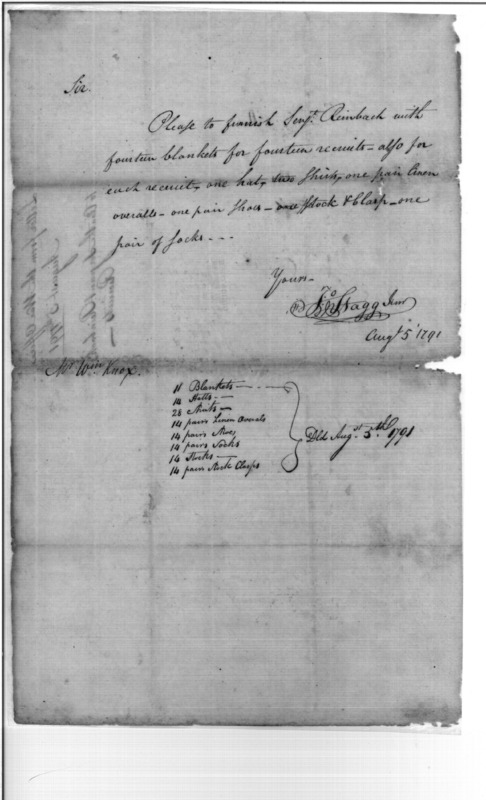 Sir.
Please to furnish Serjt. Reinbach with
fourteen blankets for fourteen recruits - also for
each recruit, one hat, two Shirts, one pair linen
overalls - one pair Shoes - one Stock & Clasp - one
pair of Socks - - -
Yours -
Jo Stagg Junr
Augt 5th 1791
Mr. Wm. Knox.
11 Blankets
14 Hatts -
28 Shirts -
14 pairs Linen Overals
14 pairs Shoes
14 pairs Socks
14 Stocks -
14 pairs Stock Clasps
Dld Augst 5th 1791